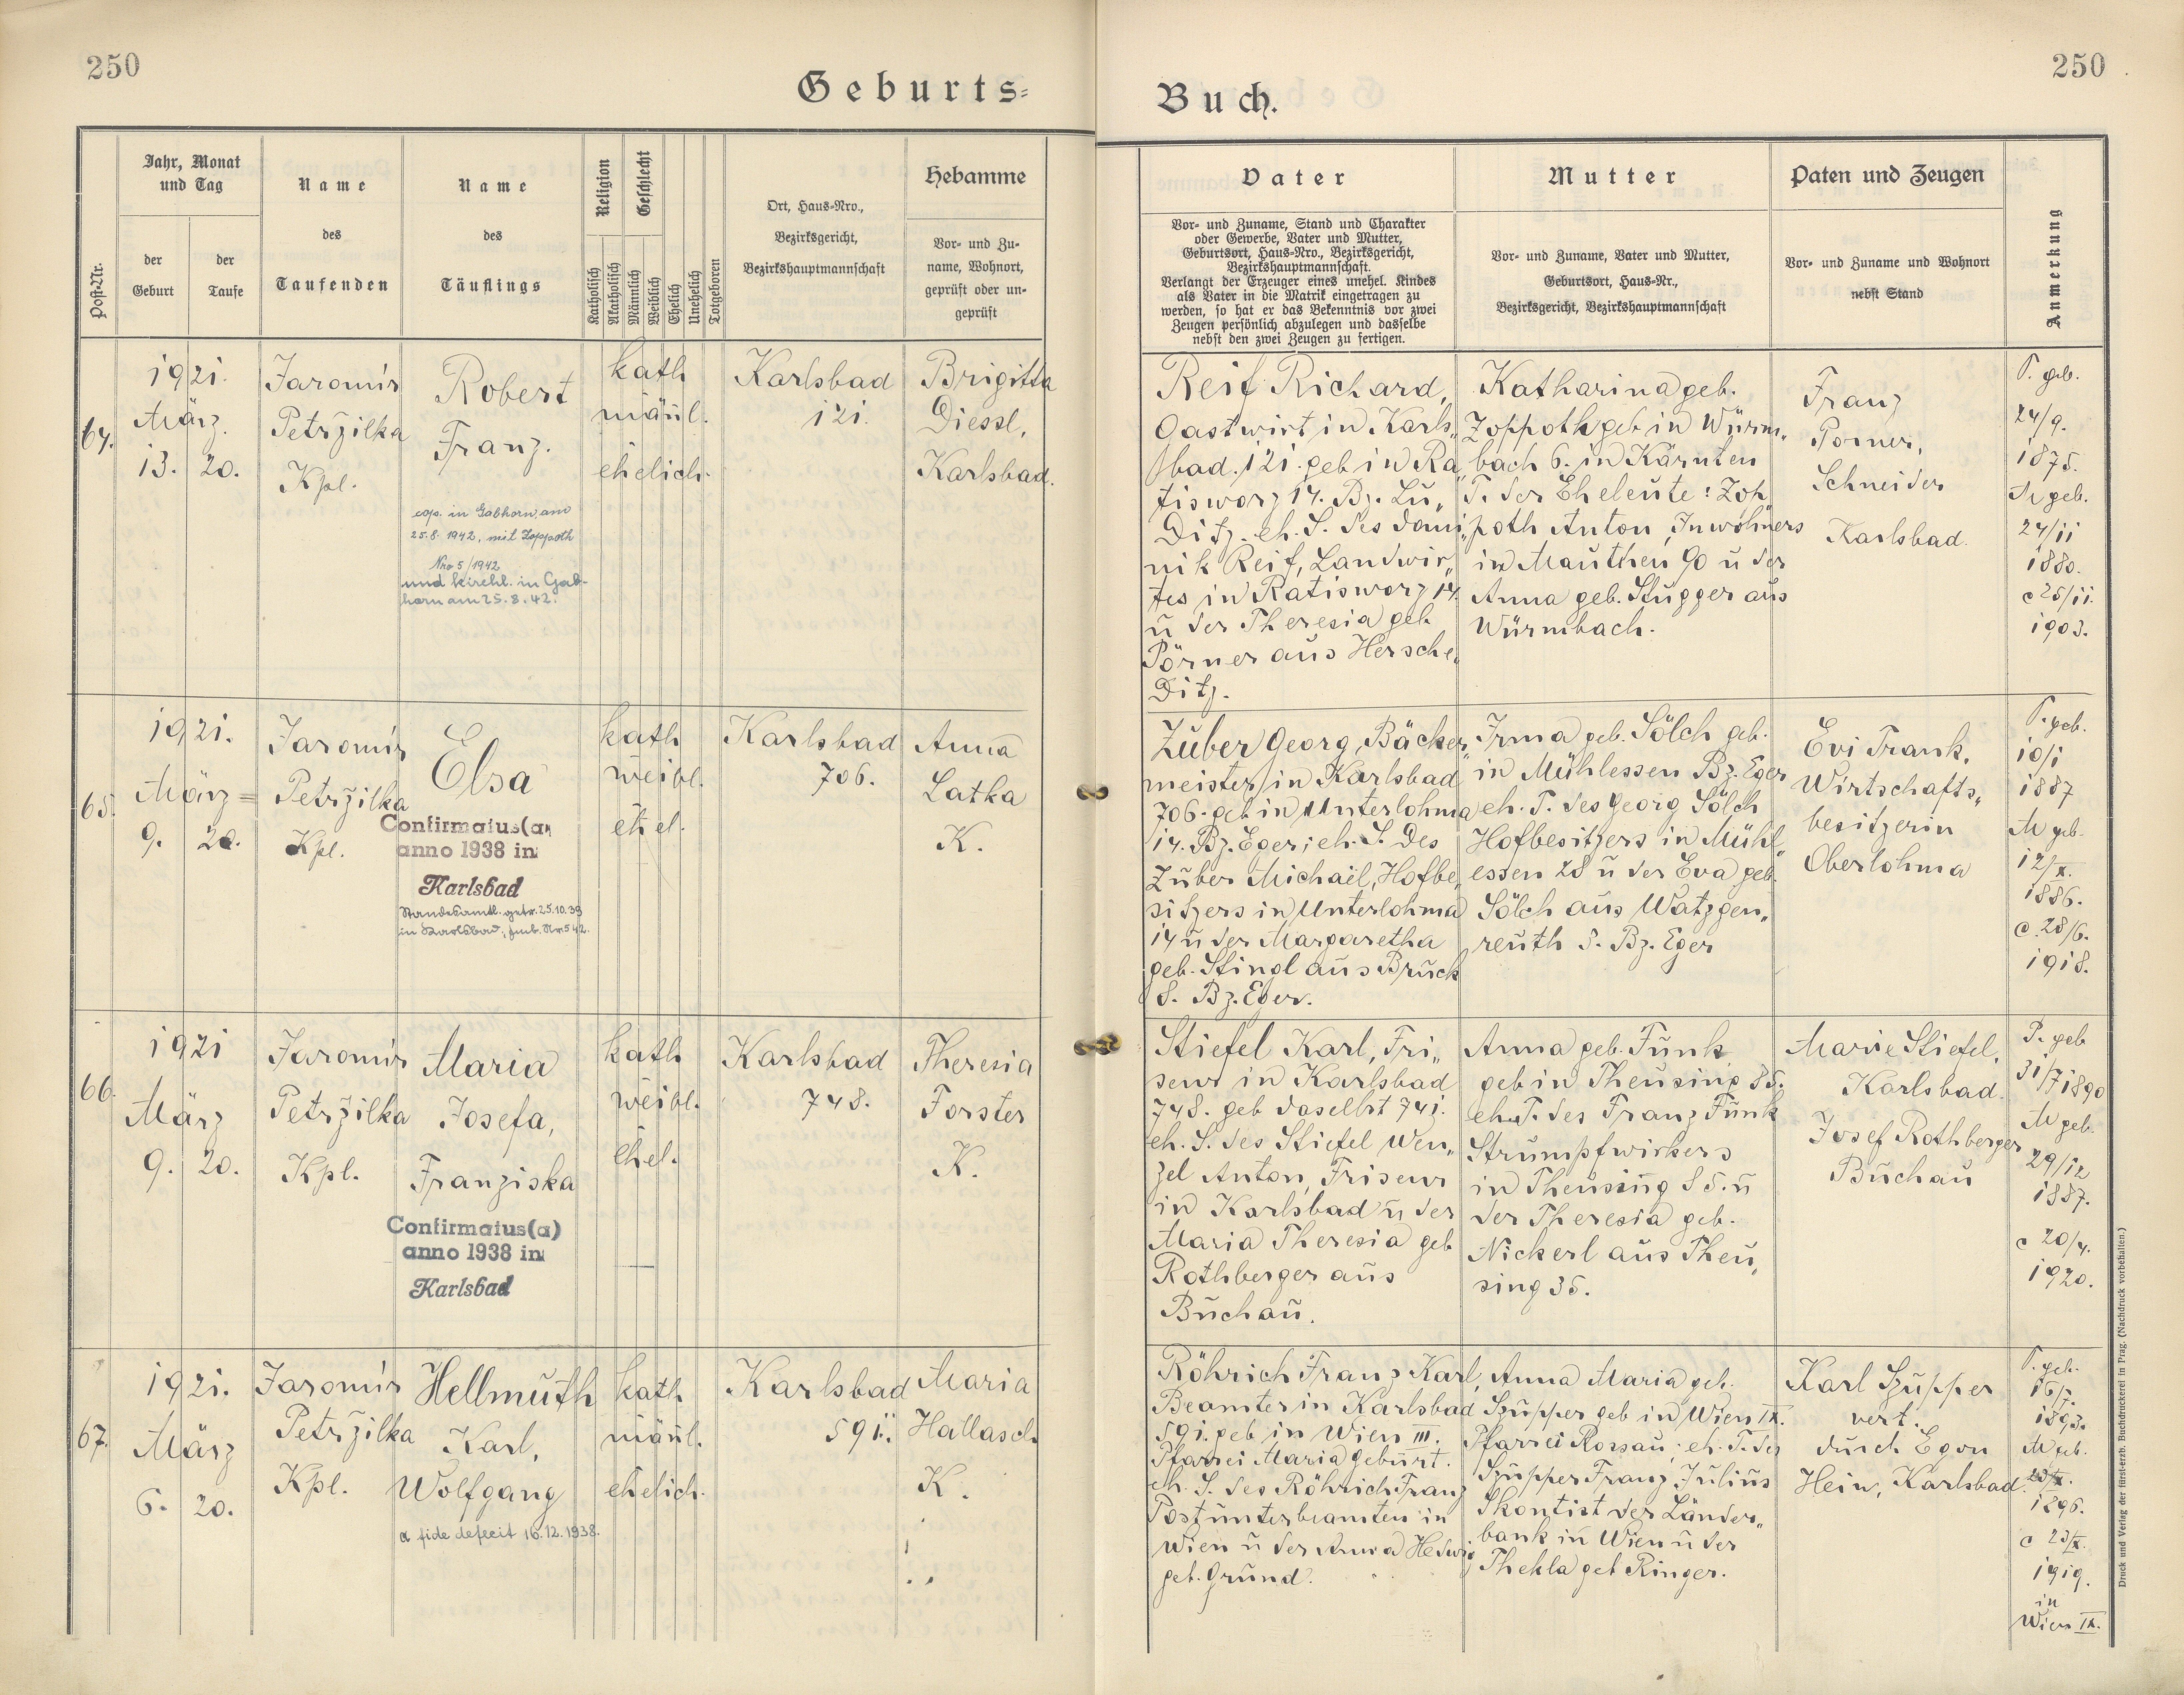 250
Geburts=
Post-Nr.
Jahr, Monat
und Tag
der
Geburt
der
Taufe
Name
des
Taufenden
Name
des
Täuflings
Religion
Geschlecht
Katholisch
Akatholisch
Männlich
Weiblich
Ehelich
Unehelich
Totgeboren
Ort, Haus-Nro.,
Bezirksgericht,
Bezirkshauptmannschaft
Hebamme
Vor- und Zu-
name, Wohnort,
geprüft oder un-
geprüft
64.
1921.
März.
13. 20.
Jaromír
Petržilka
Kpl.
Robert
Franz.
cop. in Gabhorn, am
25.8.1942, mit Zoppoth
Nro 5/1942
und kirchl. in Gab-
horn am 25.8.42.
kath
männl.
ehelich.
Karlsbad
121.
Brigitta
Diessl,
Karlsbad.
65.
1921.
März =
9. 20.
Jaromír
Petržilka
Kpl.
Elsa
Confirmatus(a)
anno 1938 in
Karlsbad
Standesamtl. getr. 25.10.39
in Karlsbad, Nr. 542.
kath
weibl.
ehel.
Karlsbad
706.
Anna
Latka
K.
66.
1921
März
9. 20.
Jaromír
Petržilka
Kpl.
Maria
Josefa,
Franziska
Confirmatus(a)
anno 1938 in
Karlsbad
kath
weibl.
ehel.
Karlsbad
748.
Theresia
Forster
K.
67.
1921.
März
6. 20.
Jaromír
Petržilka
Kpl.
Hellmuth
Karl,
Wolfgang
a fide defecit 16.12.1938.
kath
männl.
ehelich.
Karlsbad
591.
Maria
Hallasch
K.
250
Buch.
Vater
Vor- und Zuname, Stand und Charakter
oder Gewerbe, Vater und Mutter,
Geburtsort, Haus-Nro., Bezirksgericht,
Bezirkshauptmannschaft.
Verlangt der Erzeuger eines unehel. Kindes
als Vater in die Matrik eingetragen zu
werden, so hat er das Bekenntnis vor zwei
Zeugen persönlich abzulegen und dasselbe
nebst den zwei Zeugen zu fertigen.
Mutter
Vor- und Zuname, Vater und Mutter,
Geburtsort, Haus-Nr.,
Bezirksgericht, Bezirkshauptmannschaft
Paten und Zeugen
Vor- und Zuname und Wohnort
nebst Stand
Anmerkung
Reif Richard,
Gastwirt in Karls„
bad. 121. geb in Ra„
tisworz 14. Bz. Lu„
ditz. eh. S. des Domi„
nik Reif, Landwir„
tes in Ratisworz 14.
u der Theresia geb.
Pörner aus Hersche„
ditz.
Katharina geb.
Zoppoth geb in Würm„
bach 6. in Kärnten
T. der Eheleute: Zop„
poth Anton, Inwohners
in Mauthen 90 u der
Anna geb. Stugger aus
Würmbach.
Franz
Porner,
Schneider
Karlsbad.
P. geb.
24/9.
1875.
M geb.
24/11
1880.
c 25/11.
1903.
Zuber Georg, Bäcker„
meister in Karlsbad
706. geb in Unterlohma
14. Bz. Eger; eh. S. des
Zuber Michael, Hofbe„
sitzers in Unterlohma
14 u der Margaretha
geb. Stingl aus Bruck
8. Bz. Eger.
Irma geb. Sölch geb.
in Mühlessen Bz. Eger
eh. T. des Georg Sölch
Hofbesitzers in Mühl„
essen 28 u der Eva geb.
Sölch aus Watzgen„
reuth 5. Bz. Eger
Evi Frank,
Wirtschafts„
besitzerin
Oberlohma
P. geb.
10/1
1887
M geb.
12/X.
1886.
c. 28/6.
1918.
Stiefel Karl, Fri„
seur in Karlsbad
748. geb daselbst 741.
eh. S. des Stiefel Wen„
zel Anton, Friseur
in Karlsbad u der
Maria Theresia geb
Rothberger aus
Buchau.
Anna geb. Funk
geb in Theusing 85.
eh. T. des Franz Funk
Strumpfwirkers
in Theusing 85. u
der Theresia geb.
Nickerl aus Theu„
sing 35.
Marie Stiefel,
Karlsbad.
Josef Rothberger
Buchau
P. geb
31/7 1890
M geb.
29/12
1887.
c 20/4.
1920.
Röhrich Franz Karl,
Beamter in Karlsbad
591. geb in Wien III.
Pfarrei Maria Geburt.
eh. S. des Röhrich Franz
Postunterbeamten in
Wien u der Anna Hedwig
geb. Grund.
Anna Maria geb.
Szupper geb in Wien IX.
Pfarrei Rossau; eh. T. des
Szupper Franz Julius
Skontist der Länder„
bank in Wien u der
Thekla geb Ringer.
Karl Szupper
vert.
durch Egon
Hein, Karlsbad.
P. geb.
16/7.
1893.
M geb.
1896.
c 23/X.
1919.
in
Wien IX.
Druck und Verlag der fürst-erzb. Buchdruckerei in Prag. (Nachdruck vorbehalten.)